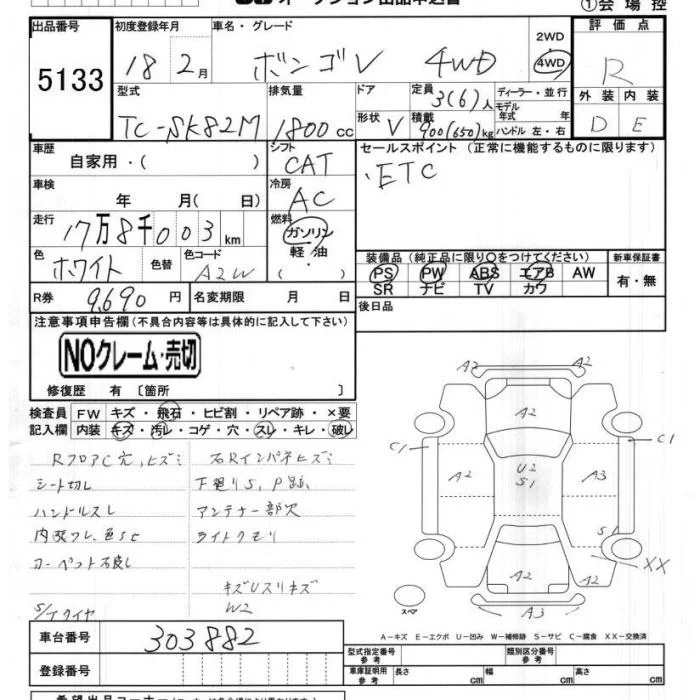 ①会場控
出品番号 初度登録年月 車名・グレード 2WD 評価点
5133 18 2月 ボンゴV 4WD 4WD R
型式 排気量 ドア 定員 ディーラー・並行 外装 内装
3(6)人 モデル年式 年
TC-SK82M 1800cc 形状 V 積載 900(650)kg ハンドル 左・右 D E
車歴 シフト セールスポイント(正常に機能するものに限ります)
自家用・( ) CAT ・ETC
車検 冷房
年 月( 日) AC
走行 燃料
17万8千003km ガソリン
色 色替 色コード 軽油 装備品(純正品に限り○をつけてください) 新車保証書
ホワイト A2W ・( ) PS PW ABS エアB AW 有・無
SR ナビ TV カワ
R券 9,690円 名変期限 月 日 後日品
注意事項申告欄(不具合内容等は具体的に記入して下さい)
NOクレーム・売切
修復歴 有〔箇所 〕
検査員 FW キズ・飛石・ヒビ割・リペア跡・×要
記入欄 内装 キズ・汚レ・コゲ・穴・スレ・キレ・破レ
RフロアC穴,ヒズミ 右Rインパネヒズミ
シート切レ 下廻りS,P跡
ハンドルスレ アンテナ一部欠
色SE ライトクモリ
カーペット不良
キズUスリキズ
S/Tタイヤ W2
A2 A2
A2
C1 C1
A2 U2 A3
S1
S1
XX
A2 A2
スペア A3
A-キズ E-エクボ U-凹み W-補修跡 S-サビ C-腐食 XX-交換済
車台番号 303882
型式指定番号 参考 類別区分番号 参考
登録番号 車庫証明用 参考 長さ cm 幅 cm 高さ cm